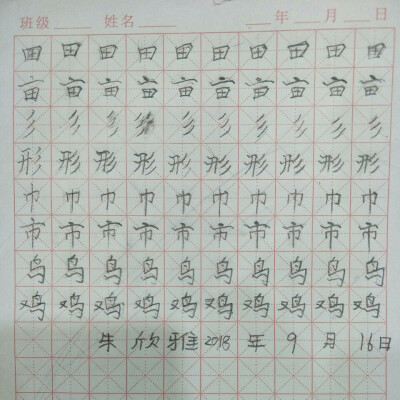 班级 姓名 年 月 日
田 田 田 田 田 田 田 田 田 田
亩 亩 亩 亩 亩 亩 亩 亩 亩 亩
彡 彡 彡 彡 彡 彡 彡 彡 彡
形 形 形 形 形 形 形 形 形 形
巾 巾 巾 巾 巾 巾 巾 巾 巾 巾
市 市 市 市 市 市 市 市 市 市
鸟 鸟 鸟 鸟 鸟 鸟 鸟 鸟 鸟 鸟
鸡 鸡 鸡 鸡 鸡 鸡 鸡 鸡 鸡 鸡
朱 欣 雅 2018 年 9 月 16日